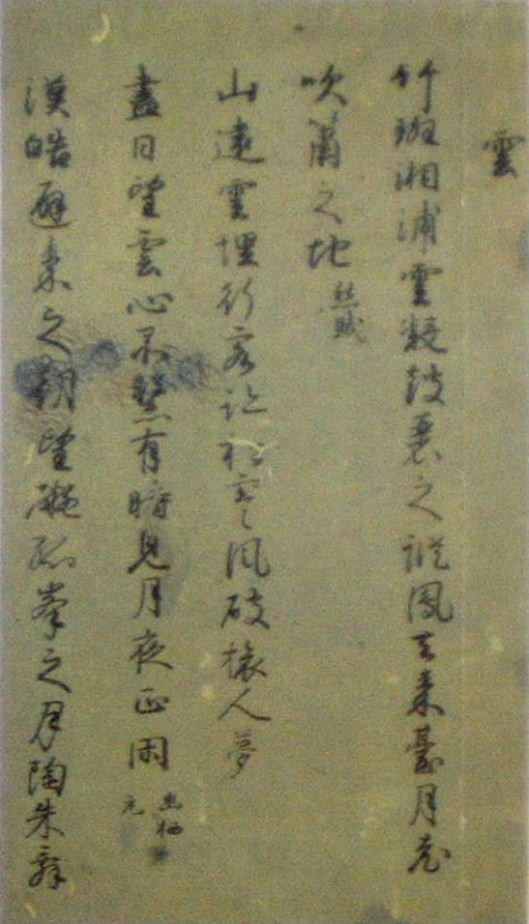 雲
竹斑湘浦雲凝鼓瑟之蹤鳳去秦臺月老
吹簫之地 愁賦
山遠雲埋行客跡松寒風破旅人夢
盡日望雲心不繫有時見月夜正閑 幽栖
元
漢皓避秦之朝望礙孤峯之月陶朱辞